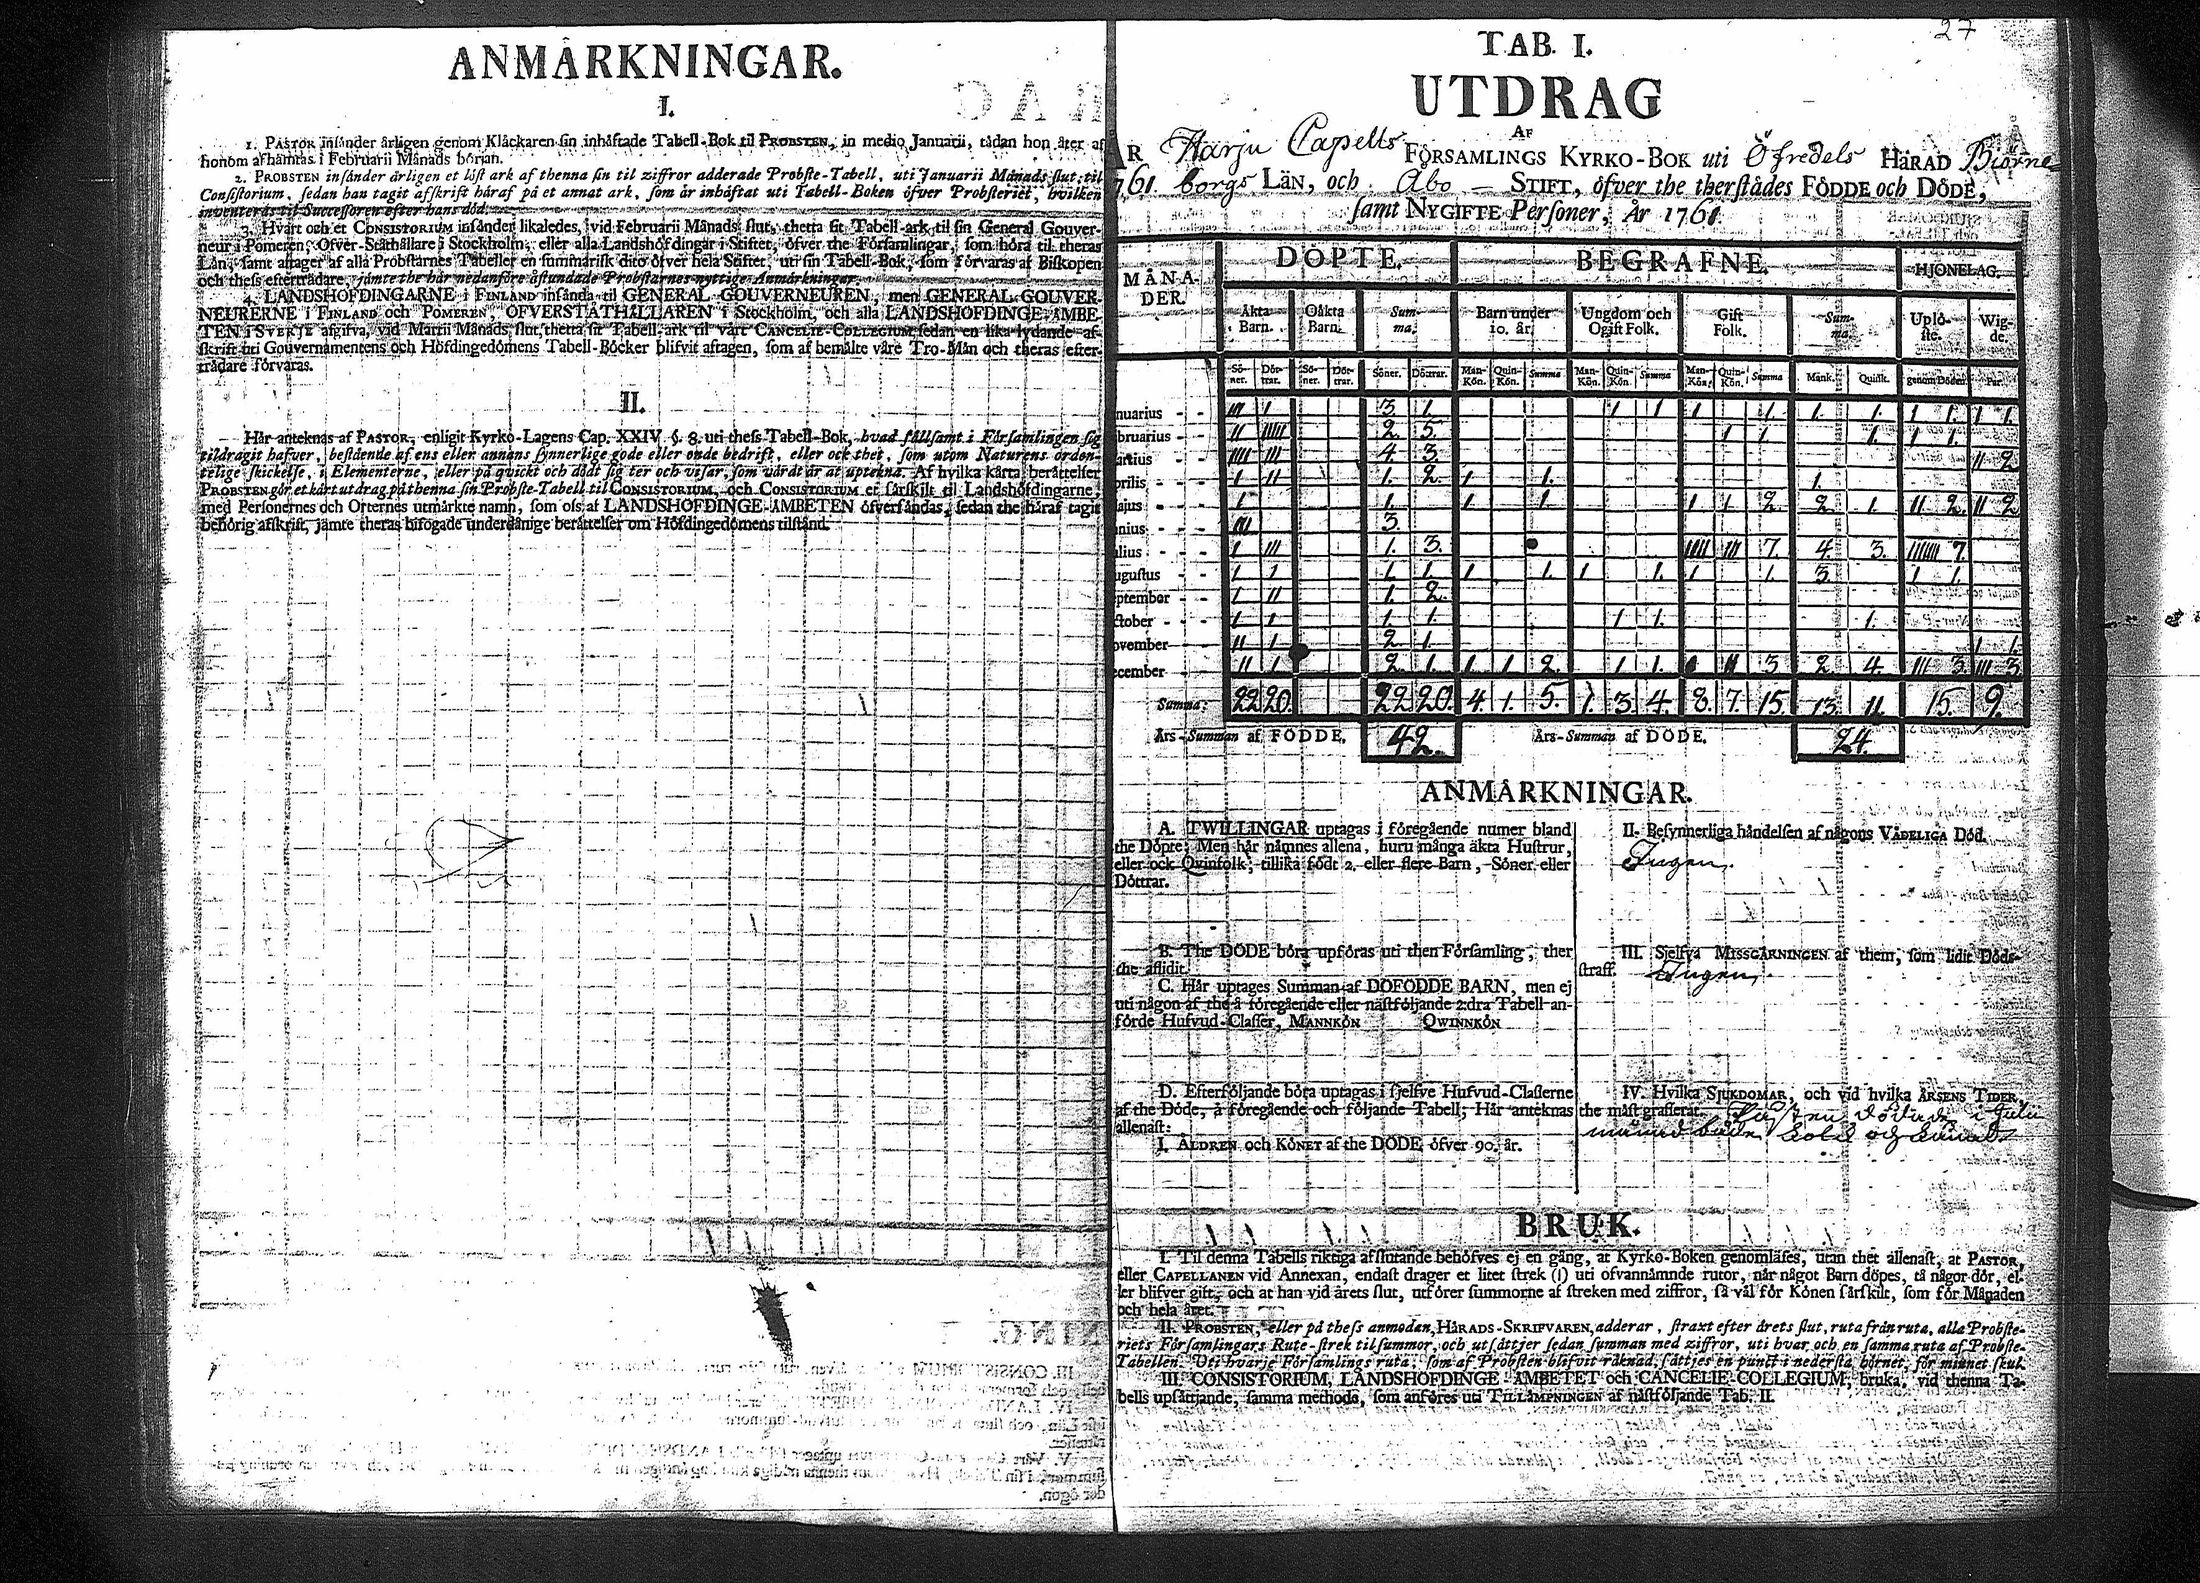 ANMÄRKNINGAR.
I.
1. PASTOR insänder årligen genom Klåckaren sin inhäftade Tabell-Bok til PROBSTEN, in medio Januarii, tådan hon åter af
honom afhämtas i Februarii Månads början.
2. PROBSTEN insänder årligen et löst ark af thenna sin til ziffror adderade Probste-Tabell, uti Januarii Månads slut, til
Consistorium, sedan han tagit afskrift häraf på et annat ark, som är inhäftat uti Tabell-Boken öfver Probsteriet, hvilken
inventeras til Successoren efter hans död.
3. Hvart och et CONSISTORIUM insänder likaledes, vid Februarii Månads slut, thetta sit Tabell-ark til sin General Gouver-
neur i Pomeren, Öfver-Ståthållare i Stockholm, eller alla Landshöfdingar i Stiftet, öfver the Församlingar, som höra til theras
Län, samt aftager af alla Probstarnes Tabeller en summarisk dito öfver hela Stiftet, uti sin Tabell-Bok, som förvaras af Biskopen
och thess efterträdare, jämte the här nedanföre åstundade Probstarnes nyttige Anmärkningar.
4. LANDSHÖFDINGARNE i FINLAND insända til GENERAL GOUVERNEUREN, men GENERAL-GOUVER-
NEURERNE i FINLAND och POMEREN, ÖFVERSTÅTHÅLLAREN i Stockholm, och alla LANDSHÖFDINGE-ÄMBE-
TEN i SVERJE afgifva, vid Martii Månads slut, thetta sit Tabell-ark til vårt CANCELIE-COLLEGIUM, sedan en lika lydande af-
skrift uti Gouvernamentens och Höfdingedömens Tabell-Böcker blifvit aftagen, som af bemälte våre Tro-Män och theras efter-
trädare förvaras.
II.
Här anteknas af PASTOR, enligit Kyrko-Lagens Cap. XXIV. §. 8. uti thess Tabell-Bok, hvad sällsamt i Församlingen sig
tildragit hafver, bestående af ens eller annans synnerlige gode eller onde bedrift, eller ock thet, som utom Naturens orden-
telige skickelse, i Elementerne, eller på qvickt och dödt sig ter och visar, som värdt är at uptekna. Af hvilka kårta berättelser
PROBSTEN gör et kårt utdrag på thenna sin Probste-Tabell til CONSISTORIUM, och CONSISTORIUM et särskilt til Landshöfdingarne,
med Personernes och Orternes utmärkte namn, som oss af LANDSHÖFDINGE-ÄMBETEN öfversändas, sedan the häraf tagit
behörig afskrift, jämte theras bifogade underdånige berättelser om Höfdingedömens tilstånd.
27
TAB. I.
UTDRAG
AF
ÅR Harju Capells FÖRSAMLINGS KYRKO-BOK uti Öfredels HÄRAD Biörne
1761. borgs LÄN, och Åbo STIFT, öfver the therstädes FÖDDE och DÖDE,
samt NYGIFTE Personer, År 1761
MÅNA-
DER.
DÖPTE. BEGRAFNE. HJONELAG.
Äkta Barn. Oäkta Barn. Summa. Barn under 10. år. Ungdom och Ogift Folk. Gift Folk. Summa. Uplöste. Wigde.
Söner. Döttrar. Söner. Döttrar. Söner. Döttrar. Man-Kön. Quin-Kön. Summa Man-Kön. Quin-Kön. Summa Man-Kön. Quin-Kön. Summa Mank. Quink. genom Döden Par.
nuarius - - III I 3. 1. 1 1 1 1. 1. 1. 1 1. 1 1.
bruarius - - II IIIII 2. 5. 1 1 1. 1 1.
artius - - IIII III 4 3. II 2
prilis - - I II 1. 2. 1 1. 1.
ajus - - I 1. 1 1 1 1 2. 2. 1. II 2. II 2
nius - - III 3.
ulius - - I III 1. 3. IIII III 7. 4. 3. IIIIIII 7.
ugustus - - I I 1. 1. 1 1. 1 1. 1 1. 3. 1 1.
eptember - - I II 1. 2.
ctober - - I I 1. 1. 1 1. 1.
ovember II I 2 1. 1 1.
ecember - - II I 2. 1. 1 1 2. 1 1. 3 2. 4. III 3. III 3.
Summa: 22 20. 22 20. 4. 1. 5. 1. 3. 4. 8. 7. 15. 13. 11. 15. 9.
Års-Summan af FÖDDE. 42. Års-Summan af DÖDE. 24.
ANMÄRKNINGAR.
A. TWILLINGAR uptagas i föregående numer bland
the Döpte; Men här nämnes allena, huru många äkta Hustrur,
eller ock Qvinfolk, tillika födt 2. eller flere Barn, Söner eller
Döttrar.
B. The DÖDE böra upföras uti then Församling, ther
the aflidit.
C. Här uptages Summan af DÖFÖDDE BARN, men ej
uti någon af the å föregående eller nästföljande 2:dra Tabell an-
förde Hufvud-Classer, MANNKÖN QWINNKÖN
D. Efterföljande böra uptagas i sjelfve Hufvud-Classerne
af the Döde, å föregående och följande Tabell; Här anteknas
allenast:
I. ÅLDREN och KÖNET af the DÖDE öfver 90. år.
II. Besynnerliga händelsen af någons VÅDELIGA Död.
Ingen.
III. Sjelfva MISSGÄRNINGEN af them, som lidit Döds-
straff. Ingen.
IV. Hvilka SJUKDOMAR, och vid hvilka ÅRSENS TIDER,
the mäst grasserat. i Julii
månad både
BRUK.
I. Til denna Tabells riktiga afslutande behöfves ej en gång, at Kyrko-Boken genomläses, utan thet allenast, at PASTOR,
eller CAPELLANEN vid Annexan, endast drager et litet strek (I) uti ofvannämnde rutor, när något Barn döpes, tå någor dör, el-
ler blifver gift, och at han vid årets slut, utförer summorne af streken med ziffror, så väl för Könen särskilt, som för Månaden
och hela året.
II. PROBSTEN, eller på thess anmodan, HÄRADS-SKRIFVAREN, adderar, straxt efter årets slut, ruta från ruta, alla Probste-
riets Församlingars Rute-strek til summor, och utsättjer sedan summan med ziffror, uti hvar och en samma ruta af Probste-
Tabellen. Uti hvarje Församlings ruta, som af Probsten blifvit räknad, sättjes en punct i nedersta hörnet, för minnet skul.
III. CONSISTORIUM, LANDSHÖFDINGE-ÄMBETET och CANCELIE-COLLEGIUM, bruka, vid thenna Ta-
bells upsättjande, samma methode, som anföres uti TILLÄMPNINGEN af nästföljande Tab. II.